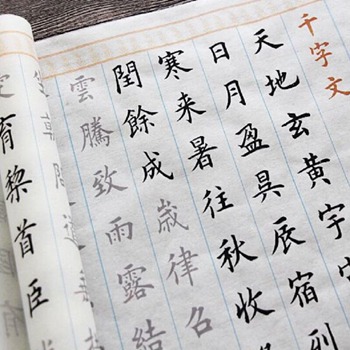 千字文
天地玄黃宇
日月盈昃辰宿
寒来暑往秋收
閏餘成歲律召
雲騰致雨露結
育黎首臣